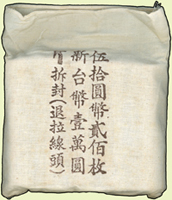 伍拾圓幣貳佰枚
新台幣壹萬圓
拆封(退拉線頭)